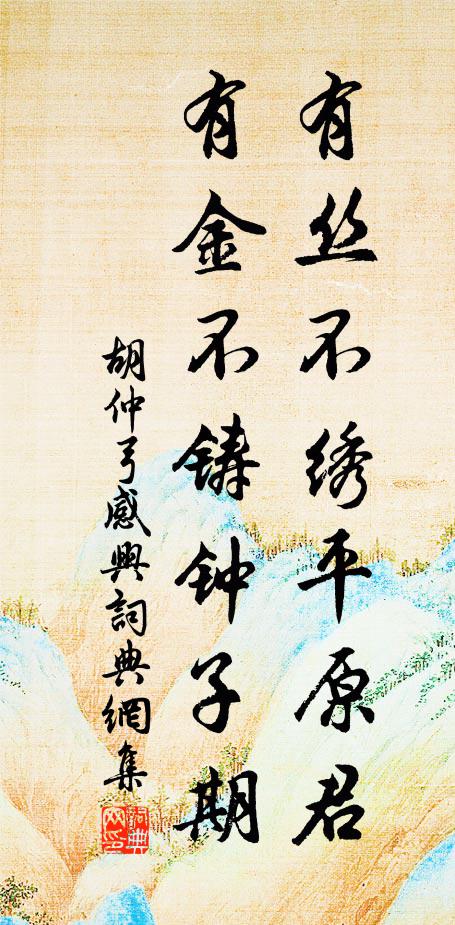 有丝不绣平原君
有金不铸钟子期
胡仲弓感興詞典網集
詞典網印